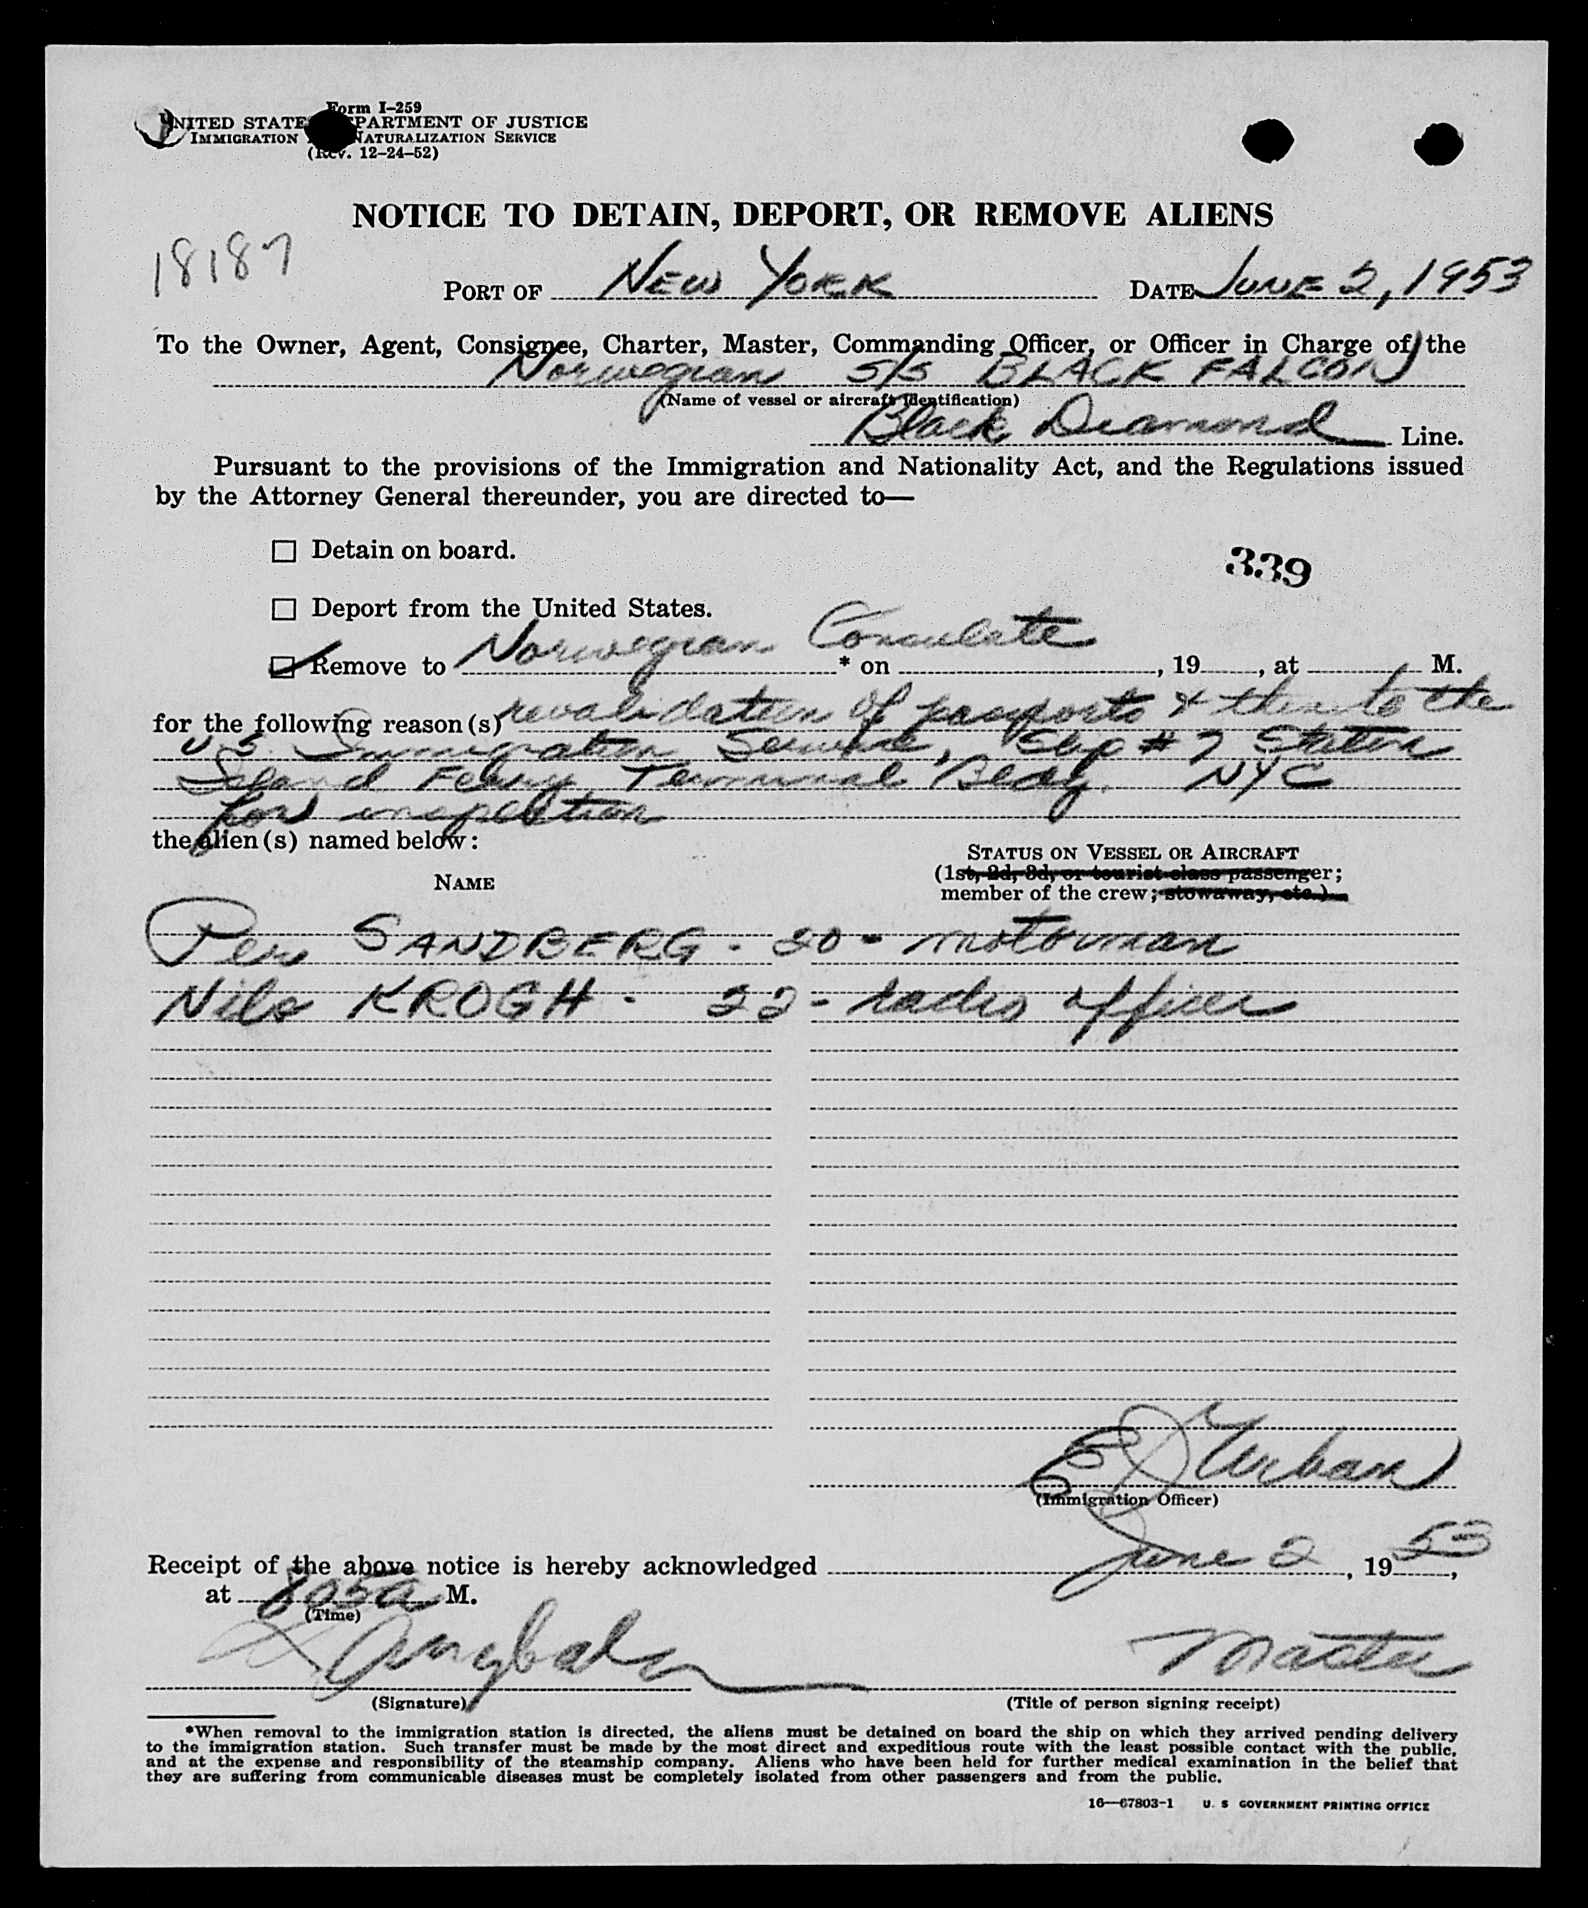 Form I-259
UNITED STATES DEPARTMENT OF JUSTICE
IMMIGRATION NATURALIZATION SERVICE
(Rev. 12-24-52)
NOTICE TO DETAIN, DEPORT, OR REMOVE ALIENS
18187
PORT OF NEW YORK DATE JUNE 2, 1953
To the Owner, Agent, Consignee, Charter, Master, Commanding Officer, or Officer in Charge of the
Norwegian S/S BLACK FALCON
(Name of vessel or aircraft identification)
Black Diamond Line.
Pursuant to the provisions of the Immigration and Nationality Act, and the Regulations issued
by the Attorney General thereunder, you are directed to—
☐ Detain on board.
339
☐ Deport from the United States.
☑ Remove to Norwegian Consulate * on , 19 , at M.
for the following reason(s) revalidation of passports & then to the
U.S. Immigration Service, Slip #7 Staten
Island Ferry Terminal Bldg. NYC
for inspection
the alien(s) named below:
STATUS ON VESSEL OR AIRCRAFT
(1st, 2d, 3d, or tourist class passenger;
NAME
member of the crew; stowaway, etc.)
Per SANDBERG - 20 - motorman
Nils KROGH - 22 - radio officer
E J Urban
(Immigration Officer)
Receipt of the above notice is hereby acknowledged June 2, 1953,
at 805a M.
(Time)
Master
(Signature) (Title of person signing receipt)
*When removal to the immigration station is directed, the aliens must be detained on board the ship on which they arrived pending delivery
to the immigration station. Such transfer must be made by the most direct and expeditious route with the least possible contact with the public,
and at the expense and responsibility of the steamship company. Aliens who have been held for further medical examination in the belief that
they are suffering from communicable diseases must be completely isolated from other passengers and from the public.
16—67803-1 U. S GOVERNMENT PRINTING OFFICE